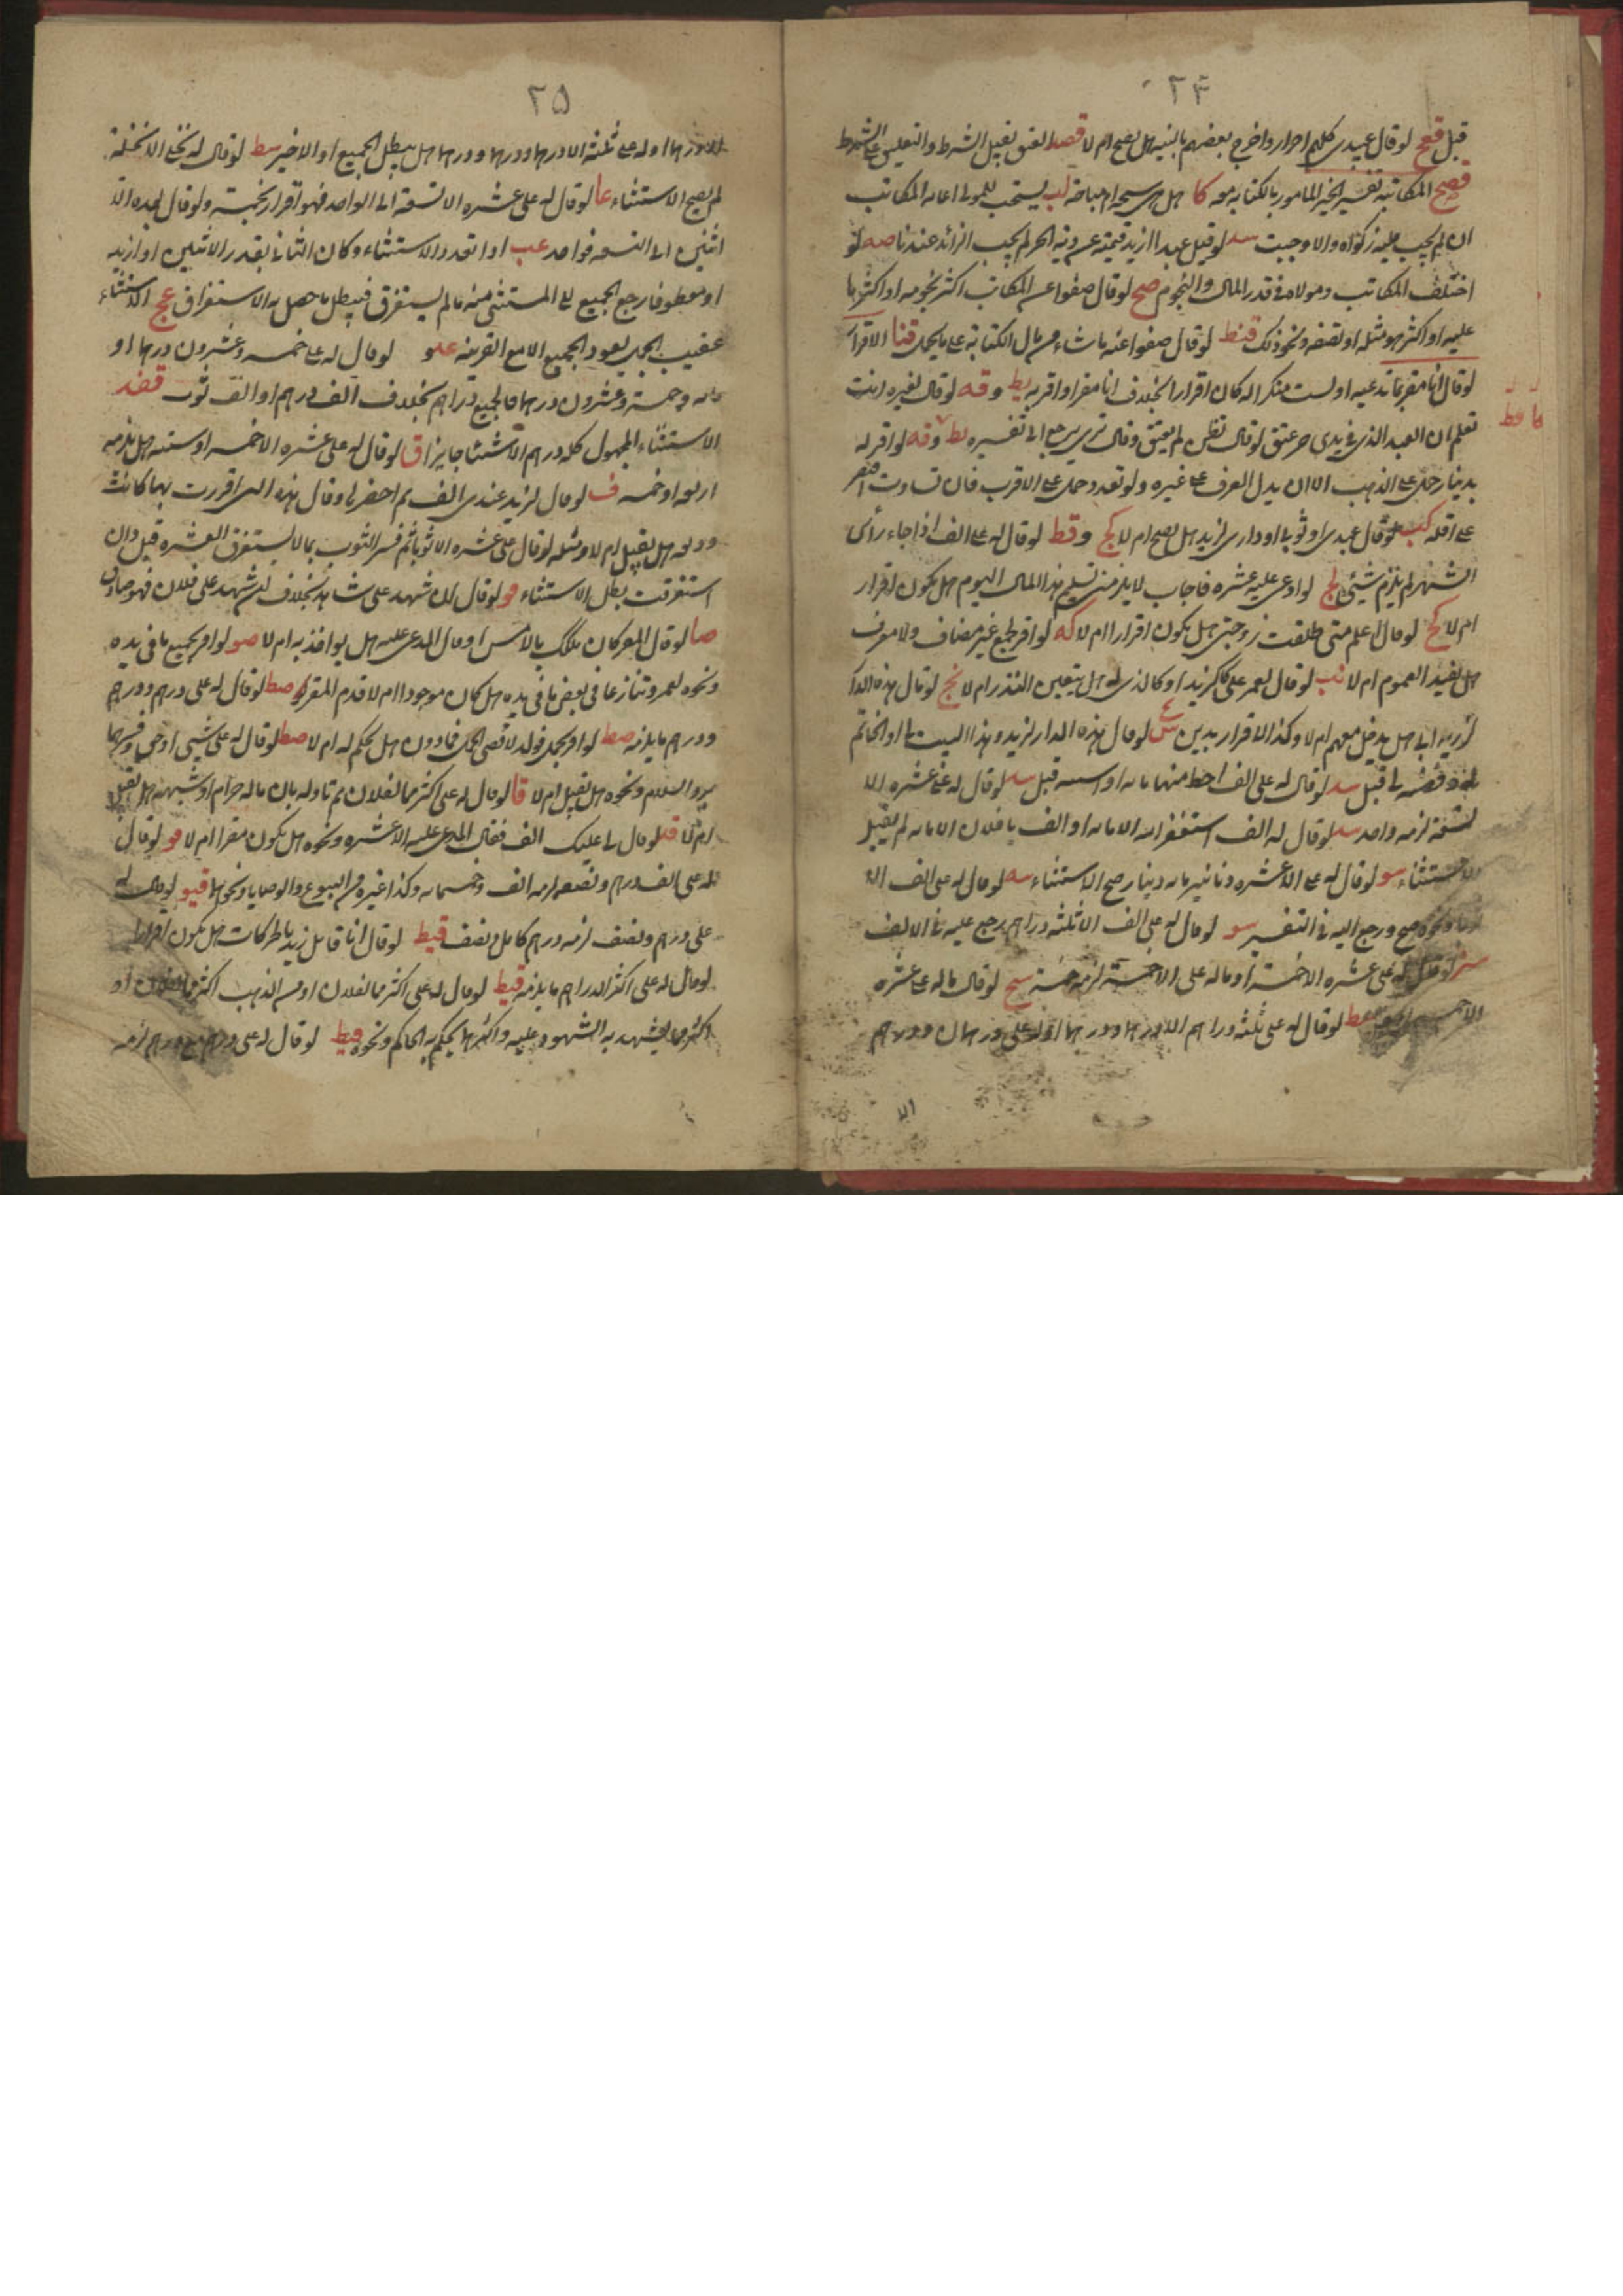 ٢٤
قبل قعح لو قال عبيدى كلهم احرار واخرج بعضهم بالنية هل يصح ام لا قصد العتق يقبل الشرط والتعليق على الشرط
قصح المكاتبة تفسير الخير المامور بالكتابة معه كا هل هى مستحبة ام مباحة لب يستحب للمولى اعانة المكاتب
ان لم يجب عليه زكواه والا وجبت سد لو قيل عبدا ازيد قيمته عن دية الحر لم يجب الزائد عندنا صه لو
اختلف المكاتب ومولاه فى قدر المال والنجوم صح لو قال ضعوا عن المكاتب اكثر نجومه او اكثر ما
عليه او اكثر هو مثله او نصفه ونحو ذلك قنط لو قال ضعوا عنه ما شاء من مال الكتابة على ما يحمل قنا الاقرار
لو قال انا مقر بما تدعيه او لست منكرا له كان اقرارا بخلاف انا مقر او اقر به يط وقه لو قال لغيره انت
تعلم ان العبد الذى فى يدى حر عتق لو قال تظن لم يعتق وقال يرجع الى تفسيره يط وقه لو اقر له
بدينار حمل على الذهب الا ان يدل العرف على غيره ولو تعدد حمل على الاقرب فان تساوت اقتصر
على اقله كب لو قال عبدى او ثوبى او دارى لزيد هل يصح ام لا كج وقط لو قال له على الف اذا جاء رأس
الشهر لم يلزم شيئ لج لو ادعى عليه عشره فاجاب لا يلزمنى تسليم هذا المال اليوم هل يكون اقرار
ام لا كج لو قال اعلم متى طلقت زوجتى هل يكون اقرارا ام لا كه لو اقر بجمع غير مضاف ولا معرف
هل يفيد العموم ام لا نب لو قال لعمر على كالزيد او كالذى له هل يتعين القدر ام لا نج لو قال هذه الدار
لزيد هل يدخل معهم ام لا وكذا الاقرار بدين لو قال هذه الدار لزيد وهذا البيت لى او الخاتم
له وفصه لى قبل سد لو قال له على الف احط منها مائه او استثنيه قبل سد لو قال له على عشره الا
تسعة لزمه واحد سد لو قال له الف استغفر الله الا مائه او الف يا فلان الا مائه لم يقبل
الاستثناء سو لو قال له على الا عشره دنانير مائه دينار صح الاستثناء سه لو قال له على الف الا
ونحوه صح ورجع اليه فى التفسير سو لو قال له على الف الا ثلثه دراهم يرجع عليه فى الالف
سز لو قال له على عشره الا خمسة او ماله على الا خمسة لزمه خمسة سح لو قال ماله على عشره
لو قال له على ثلثه دراهم الا درهما ودرهما او له على درهمان ودرهم
الا
٢٥
الا درهما او له على ثلثة الا درهما ودرهما ودرهما هل يبطل الجميع او الاخير سط لو قال له نخل الا نخلة
لم يصح الاستثناء عا لو قال له على عشره الا تسعة الى الواحد فهو اقرار بخمسة ولو قال بعده الا
اثنين الى التسعه فواحد عب اذا تعدد الاستثناء وكان الثانى بقدر الاثنين او ازيد
او معطوفا رجع الجميع الى المستثنى منه ما لم يستغرق فيبطل ما حصل به الاستغراق عج الاستثناء
عقيب الجمل يعود الجميع الا مع القرينه علو لو قال له على خمسه وعشرون درهما او
مائه وخمسة وعشرون درهما فالجميع دراهم بخلاف الف درهم او الف ثوب قضد
الاستثناء المجهول كله درهم الا شيئا جايز اق لو قال له على عشره الا خمسه او ستة هل يلزمه
اربعه او خمسه ف لو قال لزيد عندى الف ثم احضرها وقال هذه التى اقررت بها كانت
وديعه هل يقبل ام لا ومثله لو قال على عشره الا ثوبا ثم فسر الثوب بما لا يستغرق العشره قبل وان
استغرقت بطل الاستثناء فو لو قال ان شهد على شاهد بخلاف لئن شهد على فلان فهو صادق
صا لو قال المقر كان ملكك بالامس او قال المدعى عليه هل يواخذ به ام لا صو لو اقر بجميع ما فى يده
ونحوه لعمر وتنازعا فى بعض ما فى يده هل كان موجودا ام لا قدم المقر له صط لو قال له على درهم ودرهم
ودرهم ما يلزمه صط لو اقر بحمل فولد لاقصى الحمل فمادون هل يحكم له ام لا صط لو قال له على شيئ او حق وفسرهما
برد السلام ونحوه هل يقبل ام لا قا لو قال له على اكثر مما لفلان ثم تاوله بان ماله حرام او شبهة هل يقبل
ام لا قد لو قال لى عليك الف فقال المدعى عليه الا عشره ونحوه هل يكون مقرا ام لا فو لو قال
له على الف درهم ونصفه لزمه الف وخمسمائه وكذا غيره من البيوع والوصايا ونحوها قيو لو قال له
على درهم ونصف لزمه درهم كامل ونصف قيط لو قال انا قاتل زيد بالحركات هل يكون اقرارا
لو قال له على اكثر الدراهم ما يلزمه قيط لو قال له على اكثر مما لفلان او من الذهب اكثر مما لفلان او
اكثر مما يشهد به الشهود عليه واكثر ما يحكم به الحاكم ونحوه قيط لو قال له على درهم مع درهم لزمه